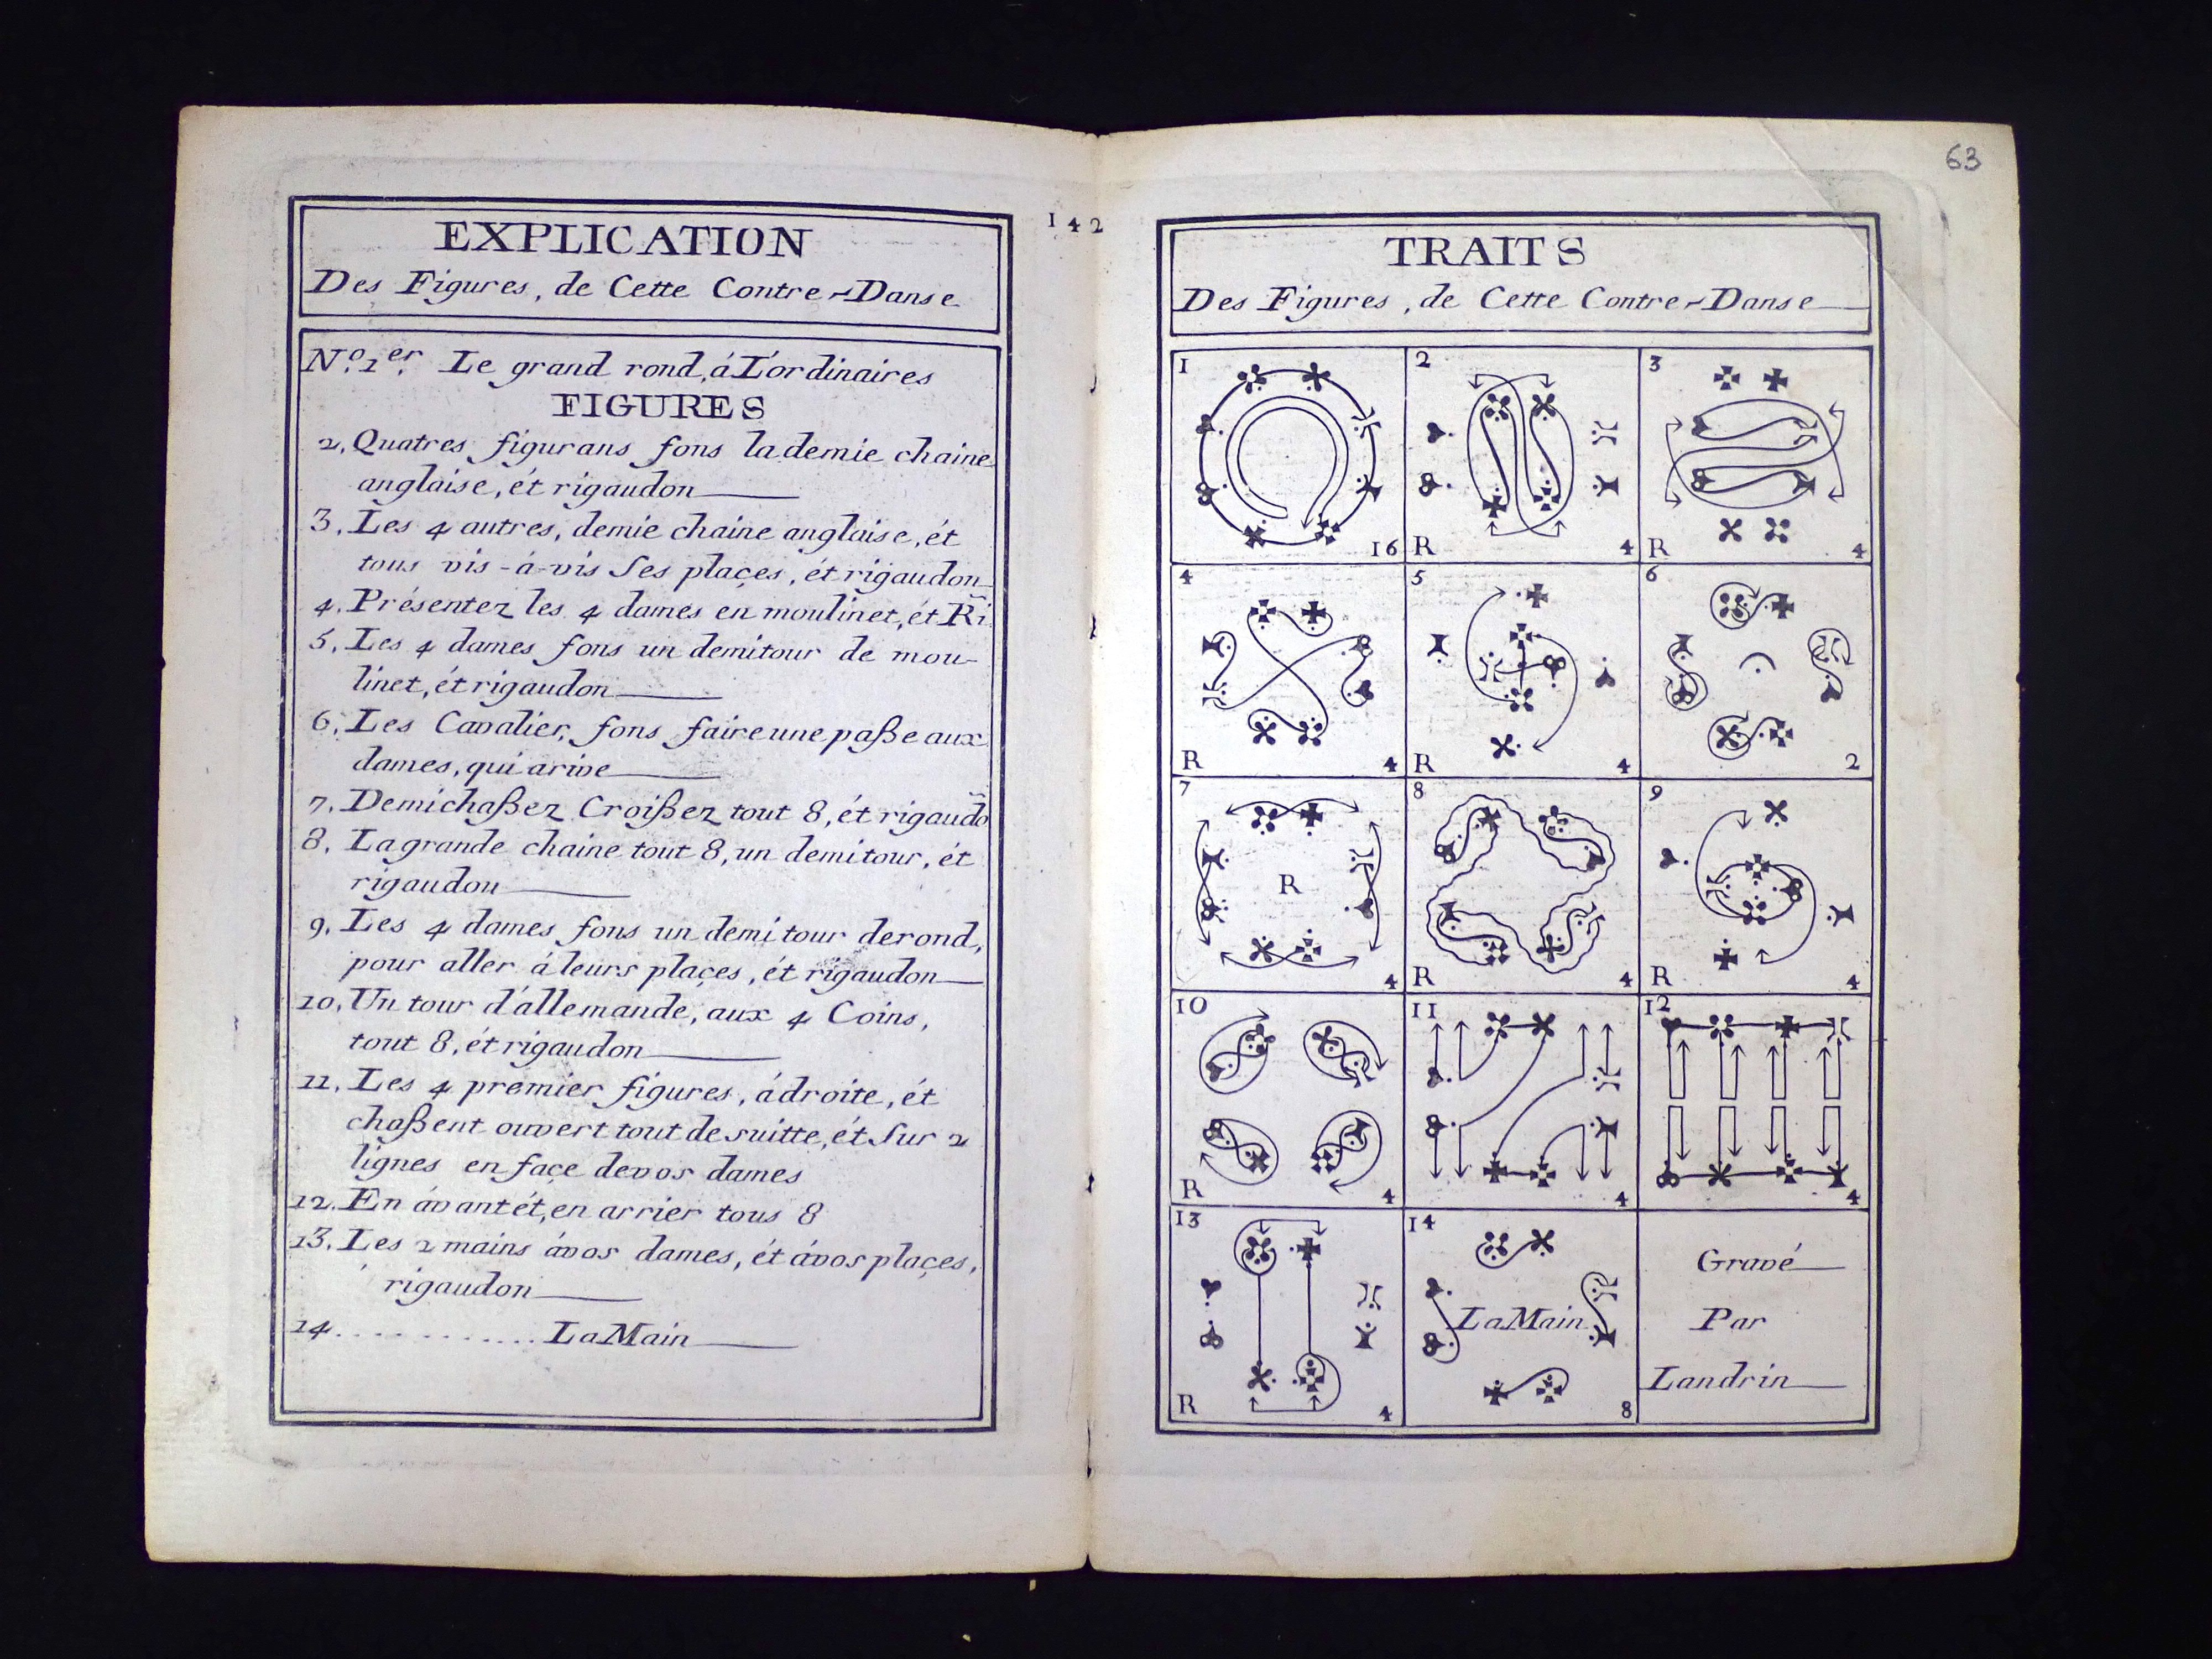 EXPLICATION
Des Figures, de Cette Contre-Danse
N.o 1er. Le grand rond, á L'ordinaires
FIGURES
2, Quatres figurans fons la demie chaine
anglaise, ét rigaudon
3, Les 4 autres, demie chaine anglaise, ét
tous vis-á-vis Ses plaçes, ét rigaudon
4, Présentez les 4 dames en moulinet, ét Ri
5, Les 4 dames fons un demitour de mou-
linet, ét rigaudon
6, Les Cavalier, fons faire une paße aux
dames, qui arive
7, Demichaßez Croißez tout 8, ét rigaudõ
8, La grande chaine tout 8, un demitour, ét
rigaudon
9, Les 4 dames fons un demi tour derond,
pour aller á leurs plaçes, ét rigaudon
10, Un tour d'allemande, aux 4 Coins,
tout 8, ét rigaudon
11, Les 4 premier figures, ádroite, ét
chaßent ouvert tout de suitte, ét Sur 2
lignes en façe devos dames
12. En ávant ét, en arrier tous 8
13. Les 2 mains ávos dames, ét ávos plaçes,
rigaudon
14 ............ LaMain
142
63
TRAITS
Des Figures, de Cette Contre-Danse
1
16
2
R
4
3
R
4
4
R
4
5
R
4
6
2
7
R
4
8
R
4
9
R
4
10
R
4
11
4
12
4
13
R
4
14
LaMain
8
Gravé
Par
Landrin